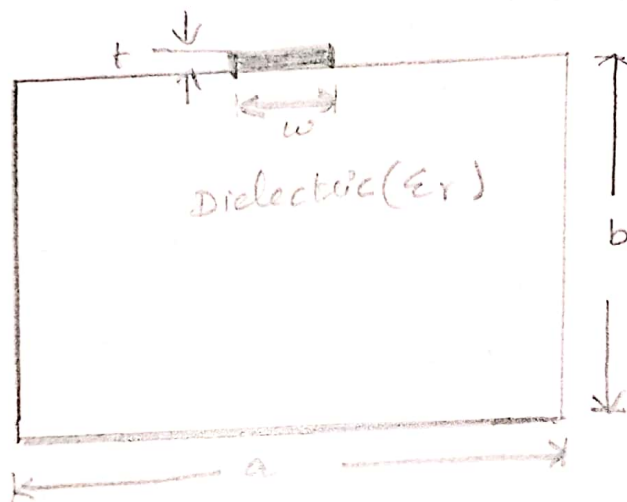 t
w
Dielectric(εr)
b
a